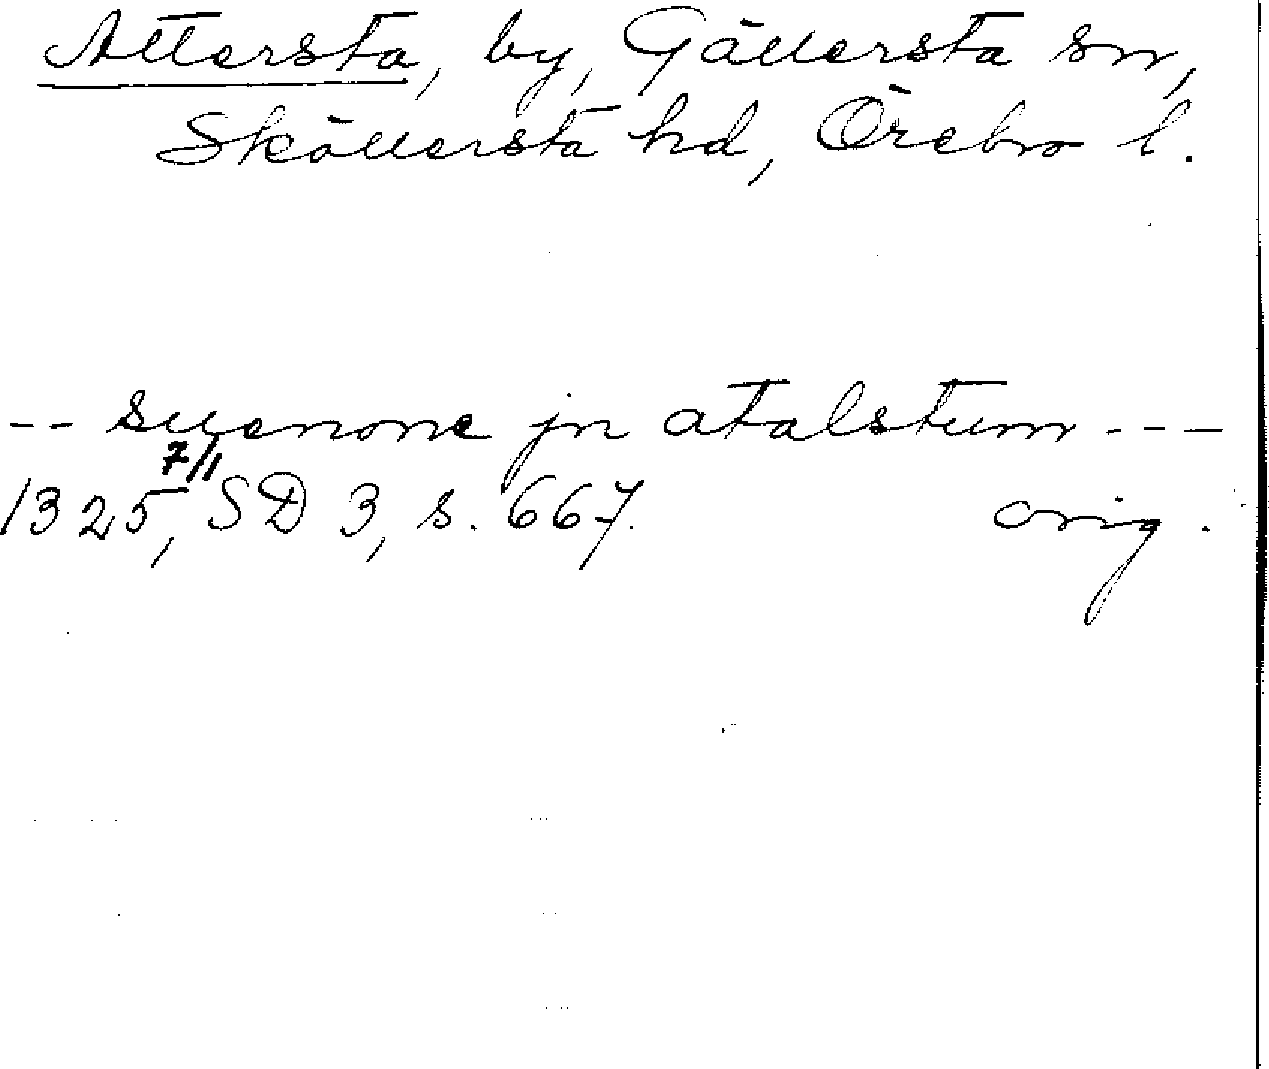 Attersta, by, Gällersta sn,
Sköllersta hd, Örebro l.
-- suenone jn atalstum ---
1325 7/1, SD 3, s. 667. orig.